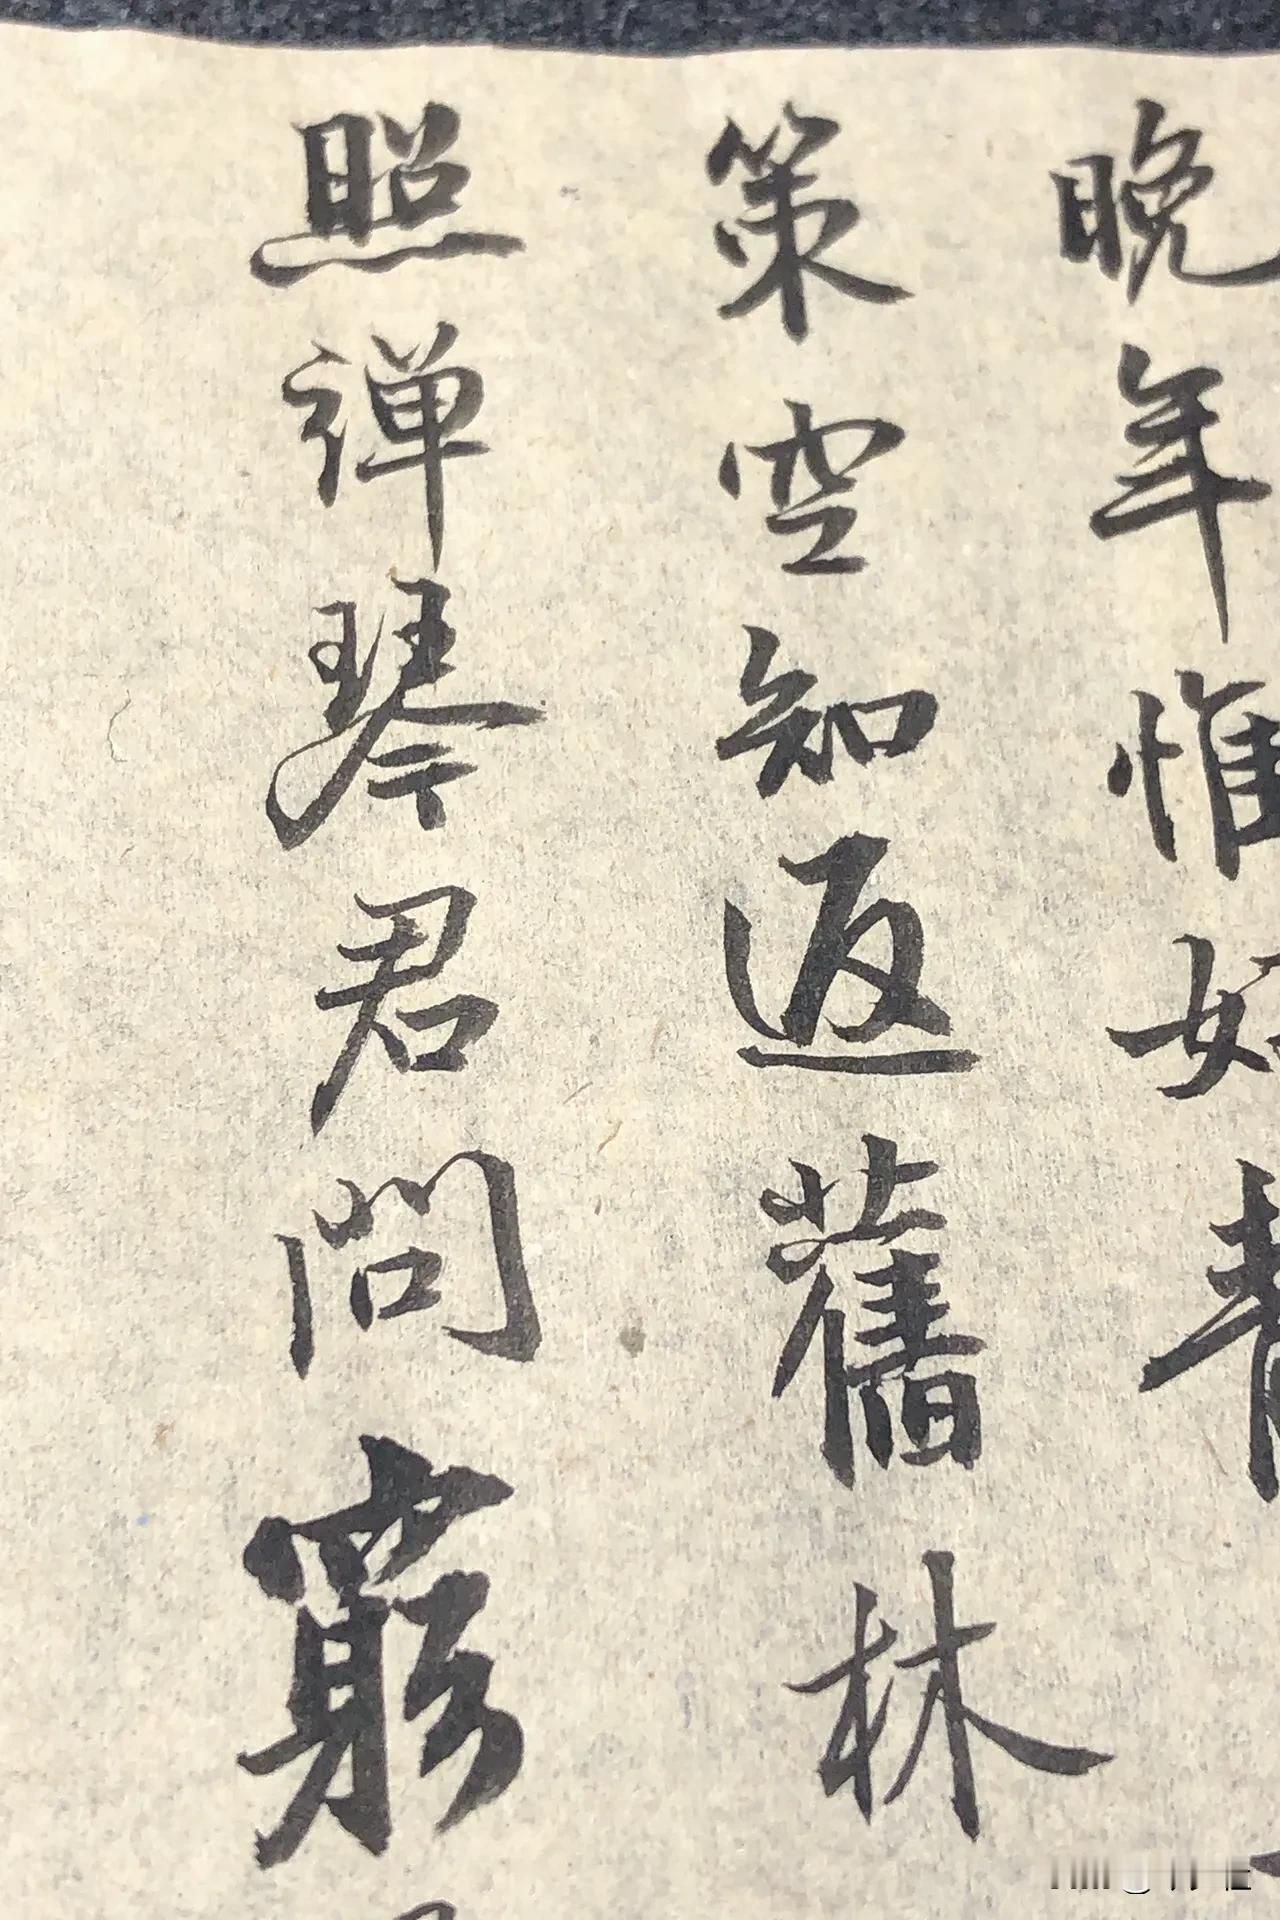 晚年惟好
策空知返舊林
照弹琴君問窮